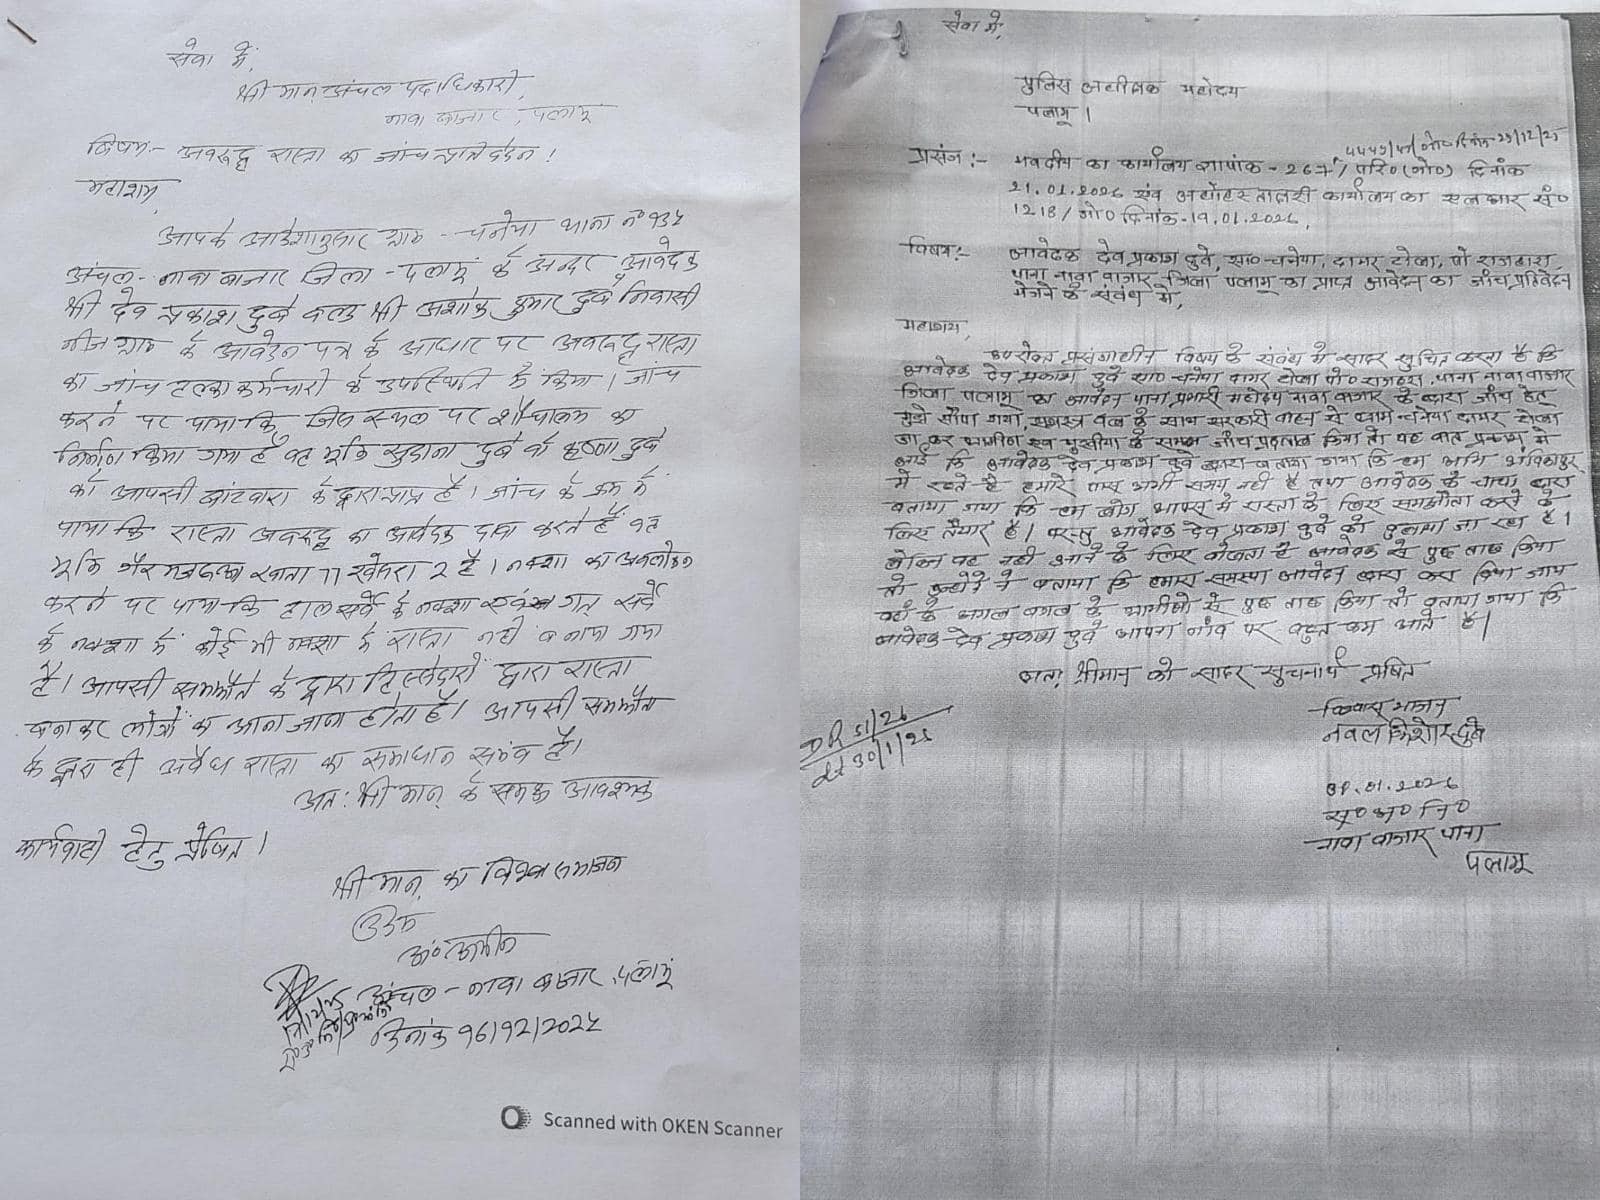 सेवा में,
श्रीमान् अंचल पदाधिकारी,
नावा बाजार, पलामू
विषय:- अवरूद्ध रास्ता का जांच प्रतिवेदन!
महाशय,
आपके आदेशानुसार ग्राम - चनेया थाना नं० १३५
अंचल - नावा बाजार जिला - पलामू के अन्दर आवेदक
श्री देव प्रकाश दुबे वल्द श्री अशोक कुमार दुबे निवासी
नीज ग्राम के आवेदन पत्र के आधार पर अवरूद्ध रास्ता
का जांच हल्का कर्मचारी के उपस्थिति में किया। जांच
करने पर पाया कि जिस स्थल पर शौचालय का
निर्माण किया गया है वह भूमि सुदामा दुबे वो कृष्णा दुबे
को आपसी बंटवारा के द्वारा प्राप्त है। जांच के क्रम में
पाया कि रास्ता अवरूद्ध का आवेदक दावा करते हैं वह
भूमि गैरमजरूआ खाता 11 खेसरा 2 है। नक्शा का अवलोकन
करने पर पाया कि हाल सर्वे के नक्शा एवं गत सर्वे
के नक्शा में कोई भी नक्शा में रास्ता नहीं बनाया गया
है। आपसी समझौते के द्वारा हिस्सेदारों द्वारा रास्ता
बनाकर लोगों का आना जाना होता है। आपसी समझौता
के द्वारा ही अवैध रास्ता का समाधान संभव है।
अत: श्रीमान् के समक्ष आवश्यक
कार्यवाही हेतु प्रेषित।
श्रीमान् का विश्वासभाजन
अं० अमीन
अंचल - नावा बाजार, पलामू
दिनांक १६/१२/२०२५
Scanned with OKEN Scanner
सेवा में,
पुलिस अधीक्षक महोदय
पलामू।
4449/ गो० दिनांक-29/12/25
प्रसंग:- भवदीय का कार्यालय ज्ञापांक - 267/ परि०(गो०) दिनांक
21.01.2026 एवं अधोहस्ताक्षरी कार्यालय का सं०
1218/गो० दिनांक-19.01.2026,
विषय:- आवेदक देव प्रकाश दुबे, सा०-चनेया, दामर टोला, पो राजहारा
थाना नावा बाजार, जिला पलामू का प्राप्त आवेदन का जाँच प्रतिवेदन
भेजने के संबंध में,
महाशय,
उपरोक्त प्रसंगाधीन विषय के संबंध में सादर सूचित करना है कि
आवेदक देव प्रकाश दुबे सा० चनेया दामर टोला पो० राजहरा, थाना नावा बाजार
जिला पलामू का आवेदन थाना प्रभारी महोदय नावा बाजार के द्वारा जाँच हेतु
मुझे सौंपा गया, सशस्त्र बल के साथ सरकारी वाहन से ग्राम चनेया दामर टोला
जा कर ग्रामीण एवं मुखीया के समक्ष जाँच पड़ताल किया तो यह बात प्रकाश में
आई कि आवेदक देव प्रकाश दुबे द्वारा बताया गया कि हम अभी अंबिकापुर
में रहते है हमारे पास अभी समय नही है तथा आवेदक के चाचा द्वारा
बताया गया कि हम लोग आपस में रास्ता के लिए समझौता करने के
लिए तैयार है। परन्तु आवेदक देव प्रकाश दुबे को बुलाया जा रहा है।
लेकिन वह नही आने के लिए बोलता है आवेदक से पुछ ताछ किया
तो उन्होंने ने बताया कि हमारा समस्या आवेदन द्वारा करा दिया जाय
वहाँ के अगल बगल के ग्रामीणों से पुछ ताछ किया तो बताया गया कि
आवेदक देव प्रकाश दुबे अपना गाँव पर बहुत कम आते है।
अतः श्रीमान को सादर सुचनार्थ प्रेषित
विश्वास भाजन
नवल किशोर दुबे
.01.2026
स० अ० नि०
नावा बाजार थाना
पलामू
DR 51/26
dt 30/1/26